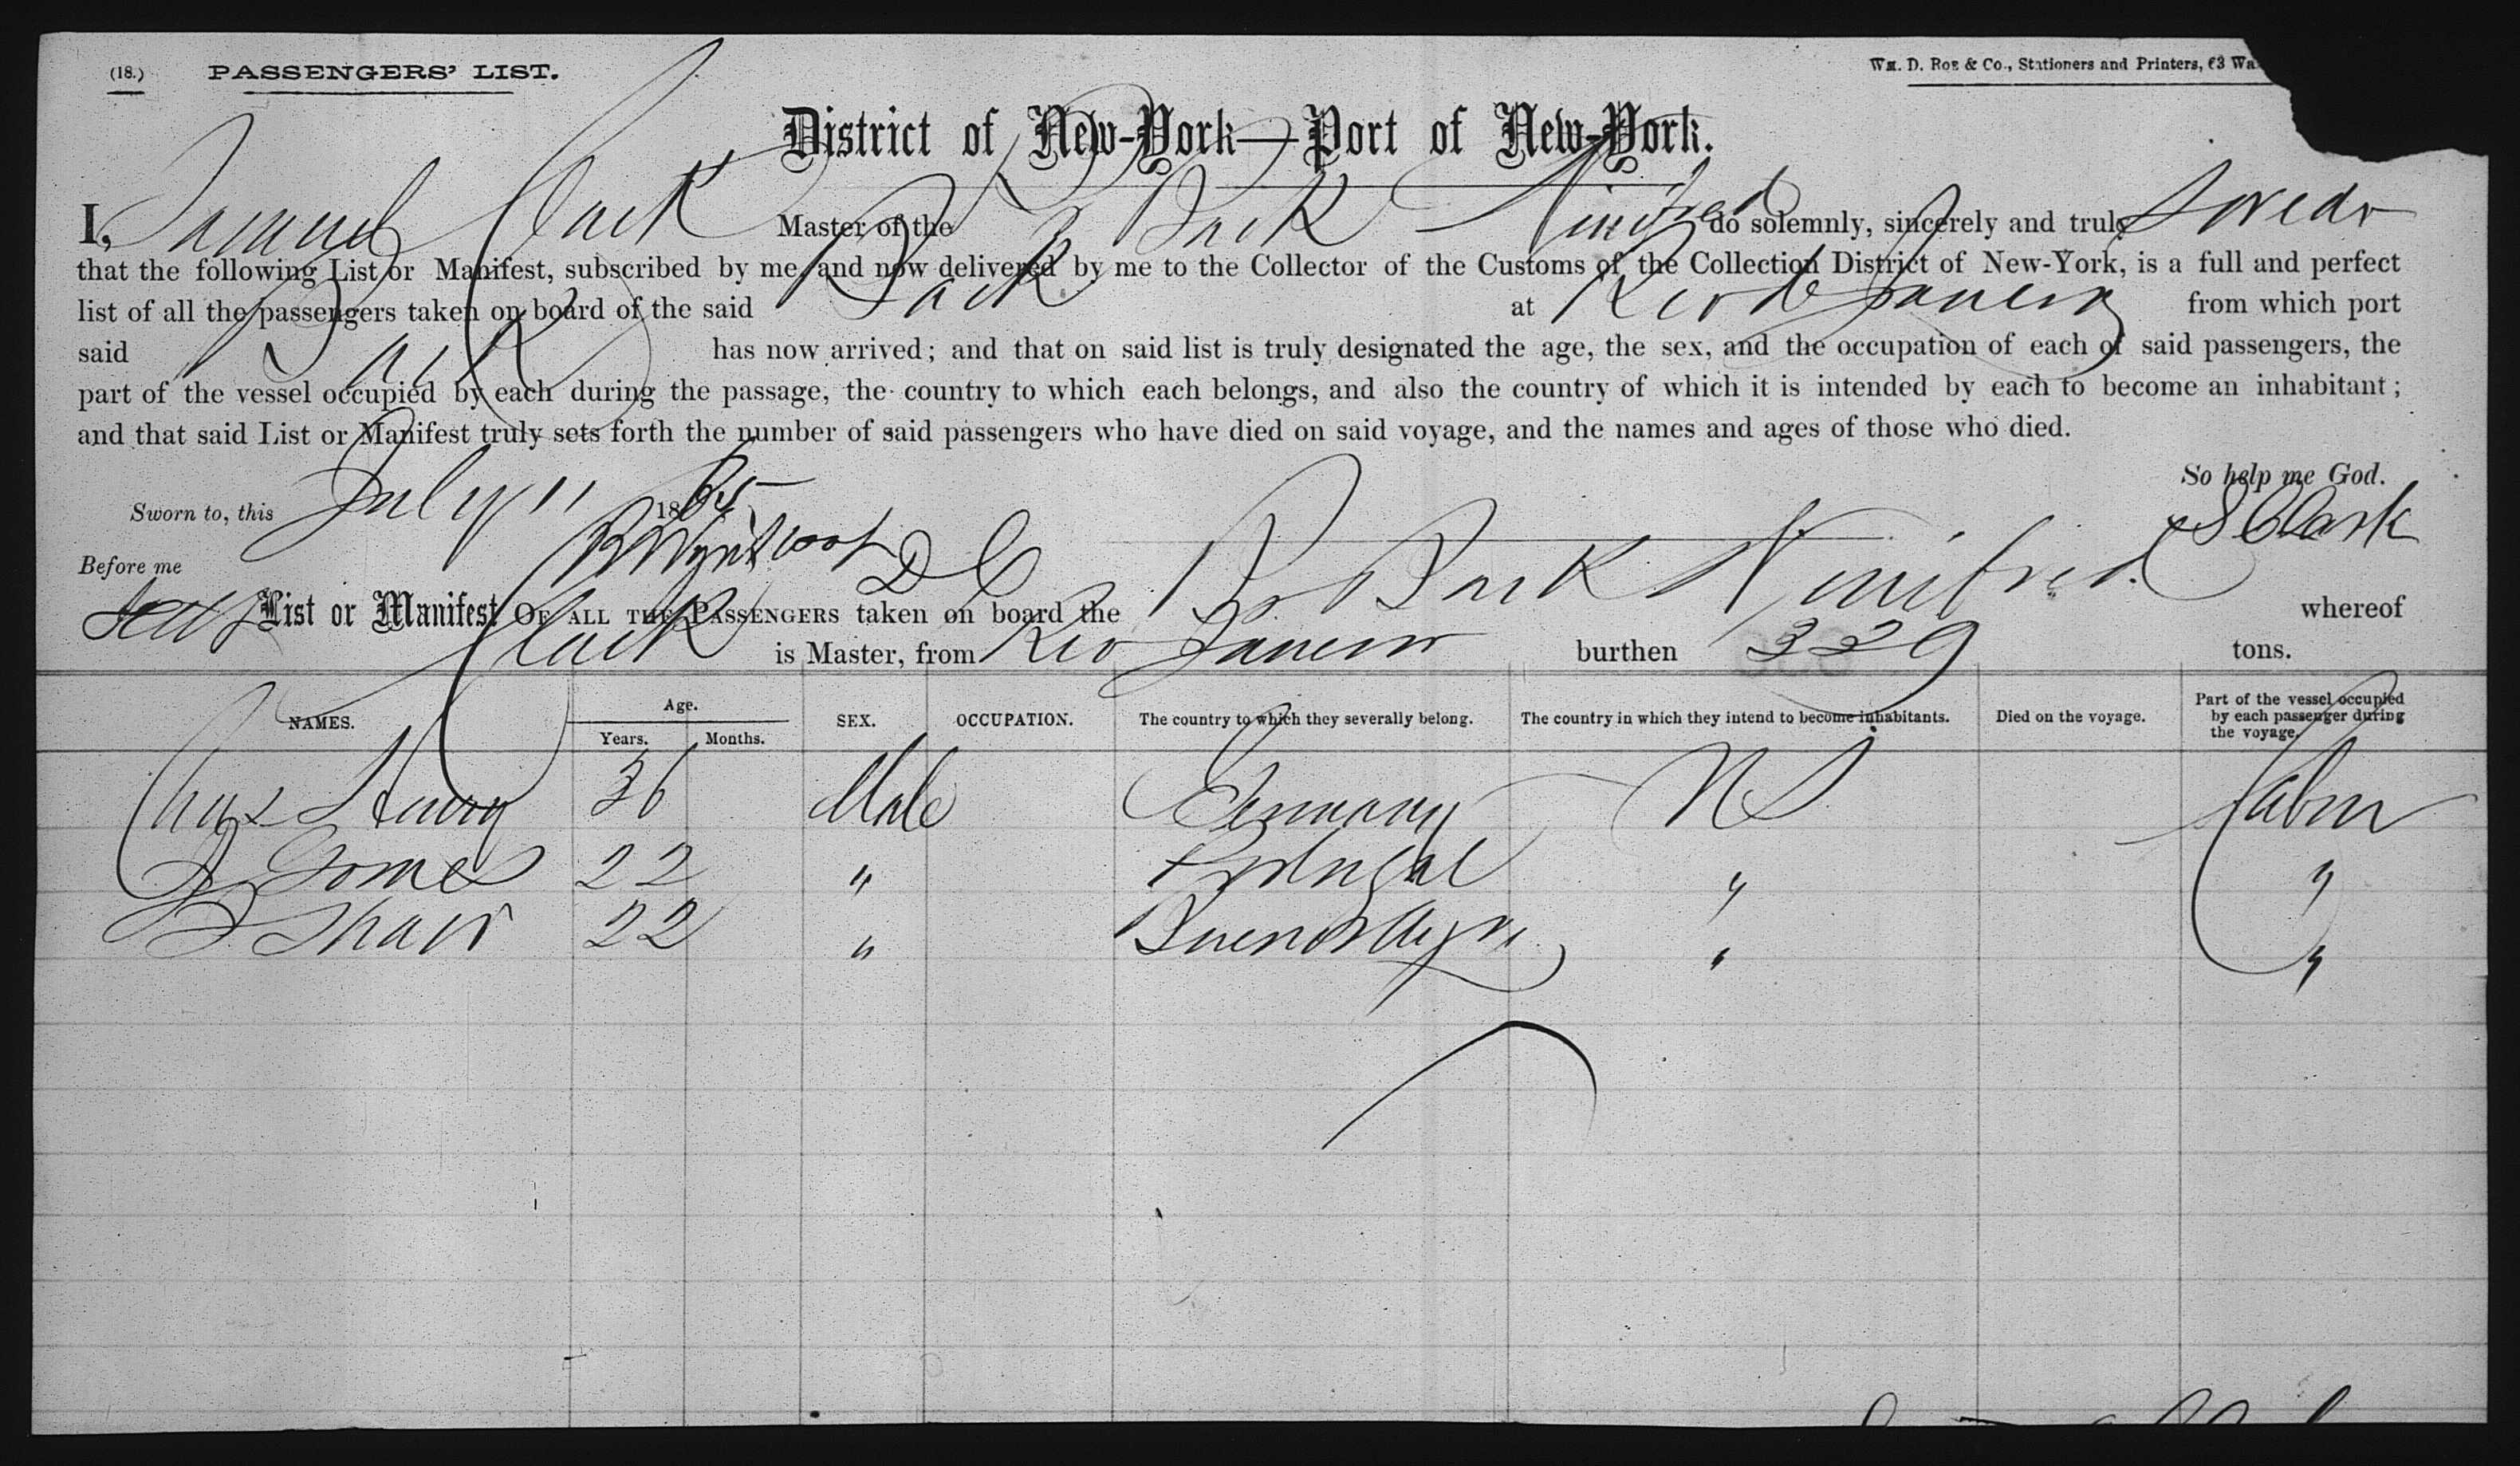 (18.) PASSENGERS' LIST. Wm. D. Roe & Co., Stationers and Printers, 63 Wa
District of New-York—Port of New-York.
I, Samuel Clark Master of the Br Bark Winifred do solemnly, sincerely and truly swear
that the following List or Manifest, subscribed by me, and now delivered by me to the Collector of the Customs of the Collection District of New-York, is a full and perfect
list of all the passengers taken on board of the said Bark at Rio de Janeiro from which port
said Bark has now arrived; and that on said list is truly designated the age, the sex, and the occupation of each of said passengers, the
part of the vessel occupied by each during the passage, the country to which each belongs, and also the country of which it is intended by each to become an inhabitant;
and that said List or Manifest truly sets forth the number of said passengers who have died on said voyage, and the names and ages of those who died.
So help me God.
Sworn to, this July 11 1865 S Clark
Before me D C
List or Manifest OF ALL THE PASSENGERS taken on board the Br Bark Winifred whereof
Clark is Master, from Rio Janeiro burthen 329 tons.
NAMES. Age. Years. Months. SEX. OCCUPATION. The country to which they severally belong. The country in which they intend to become inhabitants. Died on the voyage. Part of the vessel occupied by each passenger during the voyage.
Chas Henry 36 Male Germany US Cabin
Gomes 22 " Portugal " "
Shaw 22 " Buenos Ayres " "